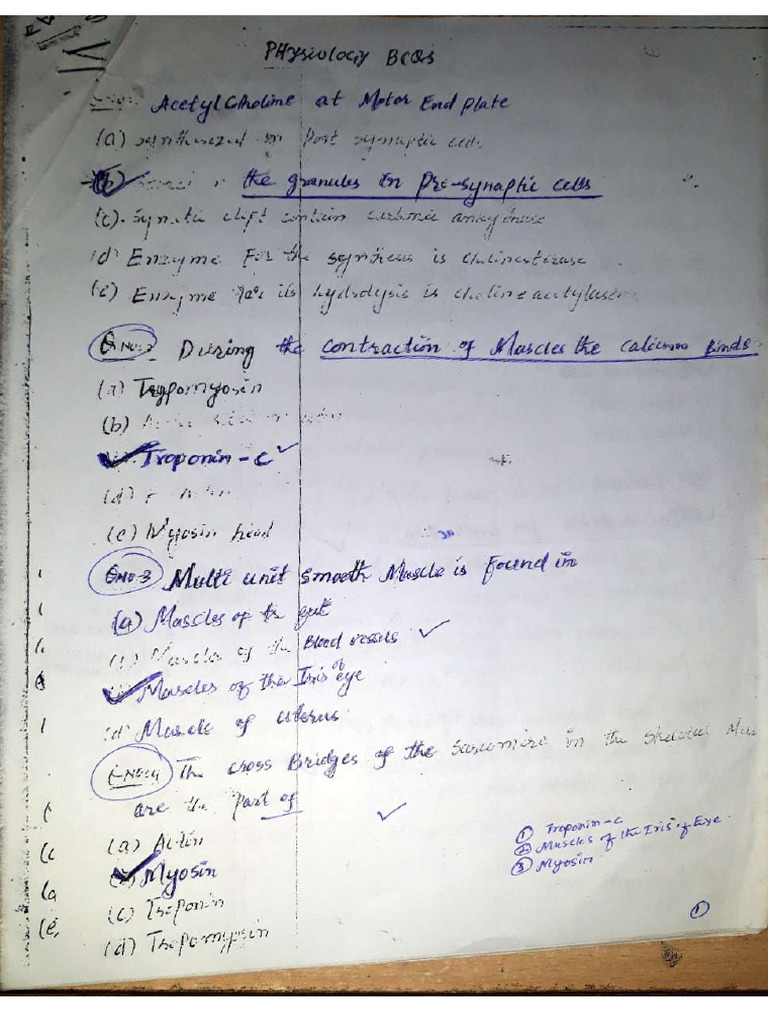 Physiology BCQs
AcetylCholine at Motor End plate
(a) synthesized in Post synaptic cells
(b) in the granules in Pre-synaptic cells
(c). cleft contain carbonic anhydrase
(d) Enzyme For the synthesis is Cholinesterase
(e) Enzyme its hydrolysis is choline acetylase
Q No:2 During the contraction of Muscles the calcium Binds
(a) Tropomyosin
(b)
Troponin-C
(d)
(e) Myosin head
QNo-3 Multi unit smooth Muscle is found in
(a) Muscles of the gut
Muscles of the Blood vessels
Muscles of the Iris of eye
(d) Muscle of uterus
The cross Bridges of the Sarcomire in the Skeletal
are the Part of
(a) Actin
Myosin
(c) Troponin
(d) Tropomypsin
① Troponin-c
② Muscles of the Iris of Eye
③ Myosin
①